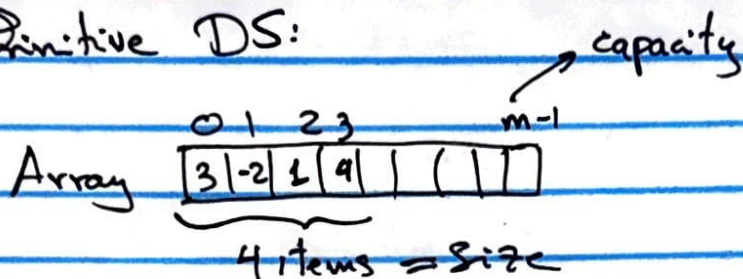 Primitive DS:
capacity
0 1 2 3 m-1
Array 3 -2 1 9
4 items = Size